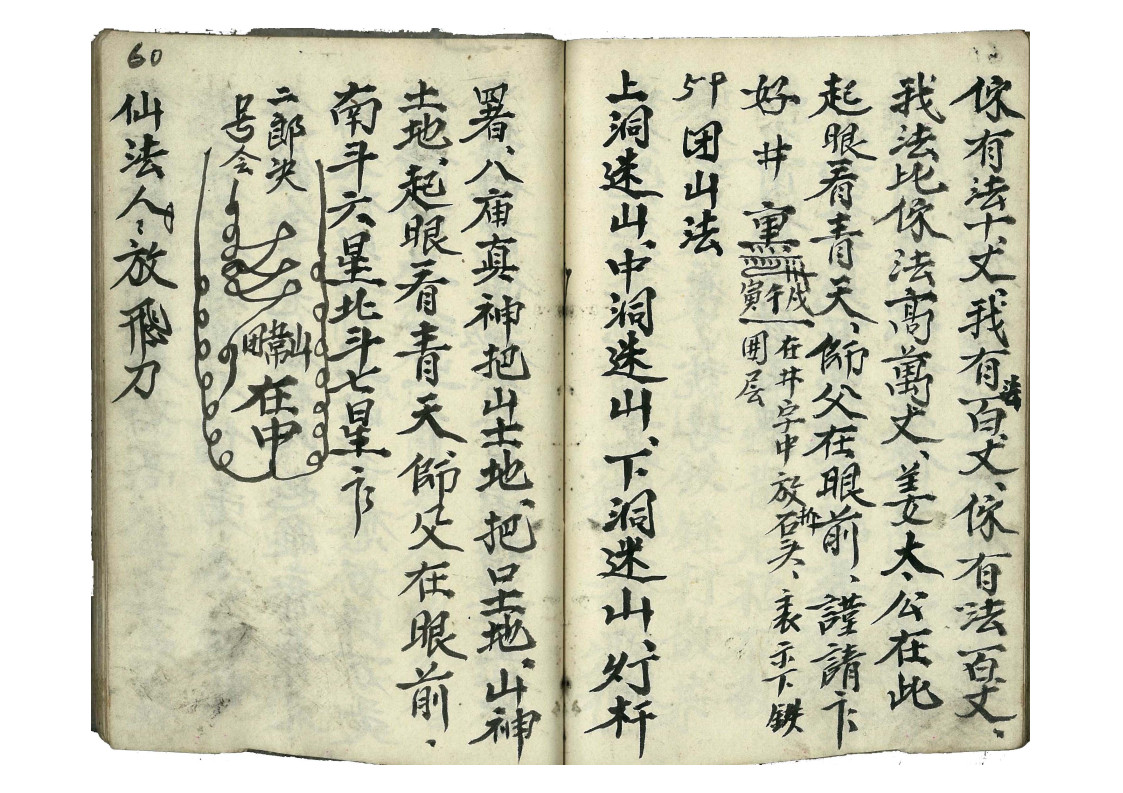 你有法十丈、我有法百丈、你有法百丈、
我法比你法高萬丈、姜太公在此
起眼看青天、師父在眼前、謹請卞
好井
寅午戌
在井字中放石头、
囲层
59 团山法
上洞迷山、中洞迷山、下洞迷山、灯杆
署、八庙真神把山土地、把口土地、山神
土地、起眼看青天師父在眼前、
南斗六星北斗七星卞
二郎决
号会
在中
60
仙法人、放飛刀